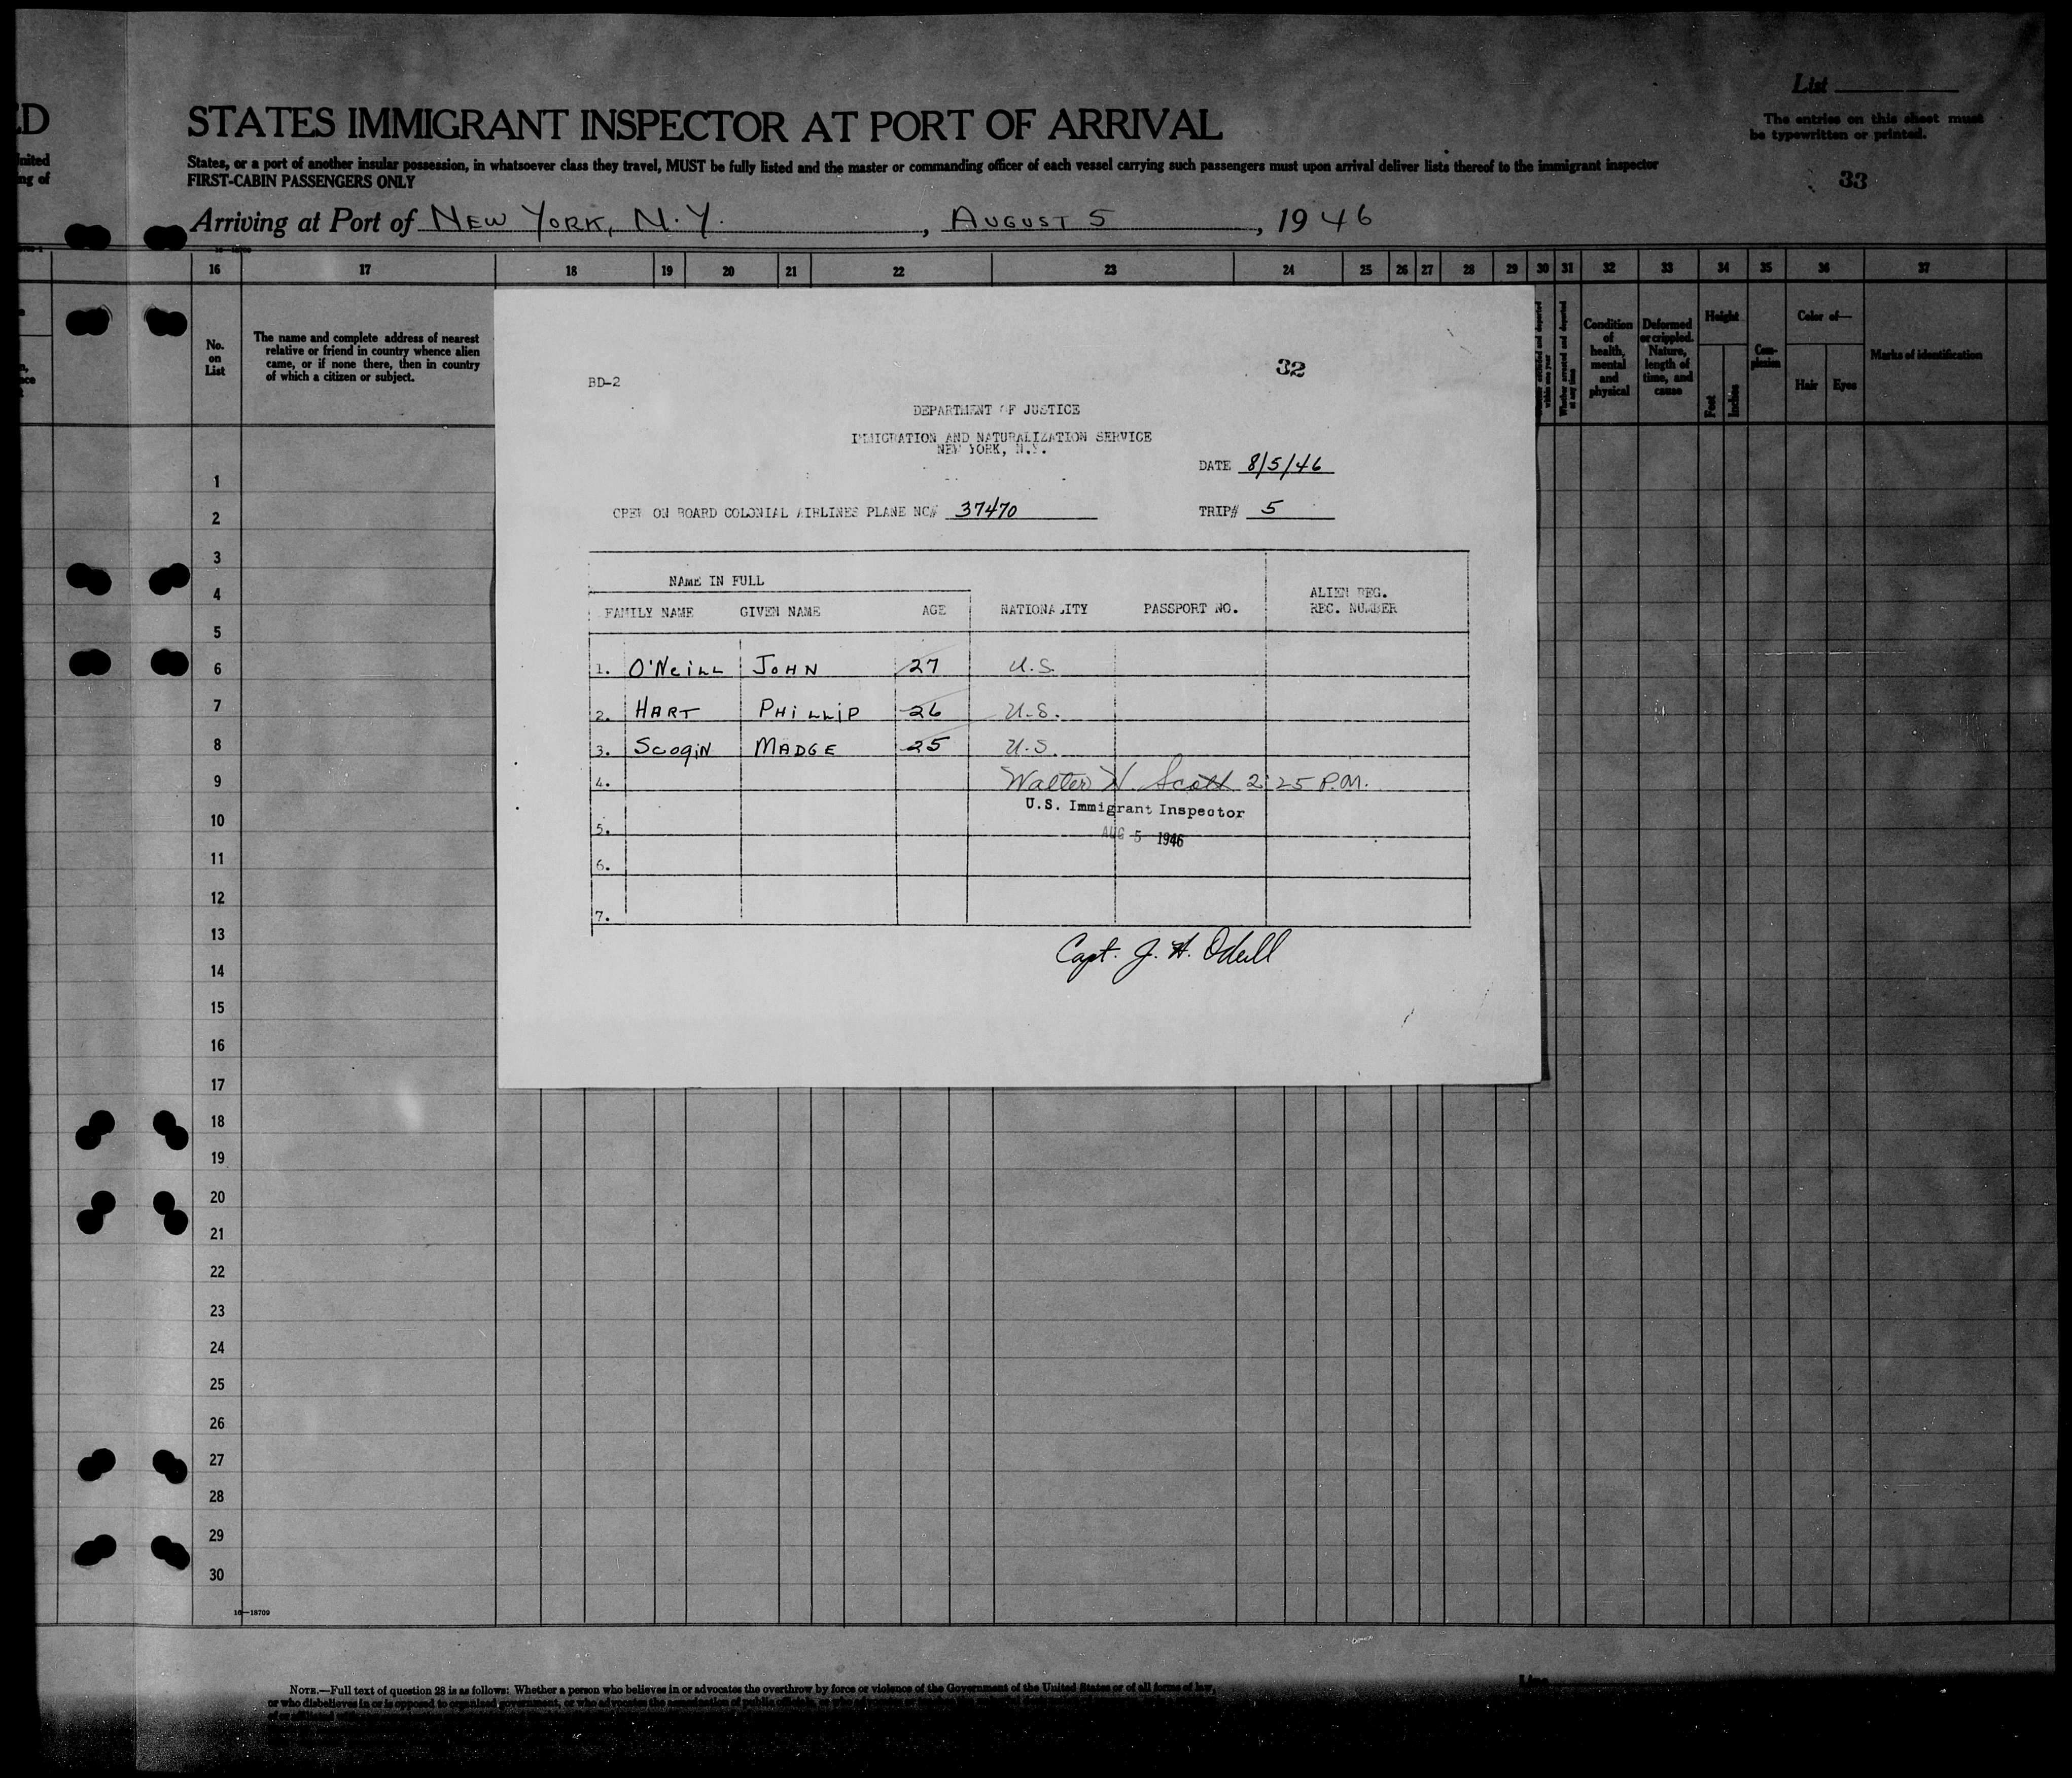 List
STATES IMMIGRANT INSPECTOR AT PORT OF ARRIVAL
The entries on this sheet must
be typewritten or printed.
States, or a port of another insular possession, in whatsoever class they travel, MUST be fully listed and the master or commanding officer of each vessel carrying such passengers must upon arrival deliver lists thereof to the immigrant inspector
FIRST-CABIN PASSENGERS ONLY
33
Arriving at Port of NEW YORK, N.Y. , AUGUST 5 , 1946
16 17 18 19 20 21 22 23 24 25 26 27 28 29 30 31 32 33 34 35 36 37
No.
on
List
The name and complete address of nearest
relative or friend in country whence alien
came, or if none there, then in country
of which a citizen or subject.
Condition
of
health,
mental
and
physical
Deformed
or crippled.
Nature,
length of
time, and
cause
Height
Feet
Inches
Com-
plexion
Color of—
Hair Eyes
Marks of identification
32
BD-2
DEPARTMENT OF JUSTICE
IMMIGRATION AND NATURALIZATION SERVICE
NEW YORK, N.Y.
DATE 8/5/46
CREW ON BOARD COLONIAL AIRLINES PLANE NC# 37470
TRIP# 5
NAME IN FULL
FAMILY NAME GIVEN NAME AGE NATIONALITY PASSPORT NO.
ALIEN REG.
REC. NUMBER
1. O'NEILL JOHN 27 U.S.
2. HART PHILLIP 26 U.S.
3. SCOGIN MADGE 25 U.S.
4. Walter W. Scott 2:25 P.M.
U.S. Immigrant Inspector
5. AUG 5 1946
6.
7.
Capt. J. H. Oneill
1
2
3
4
5
6
7
8
9
10
11
12
13
14
15
16
17
18
19
20
21
22
23
24
25
26
27
28
29
30
16—18709
NOTE.—Full text of question 28 is as follows: Whether a person who believes in or advocates the overthrow by force or violence of the Government of the United States or of all forms of law,
or who disbelieves in or is opposed to organized government, or who advocates the assassination of public officials,